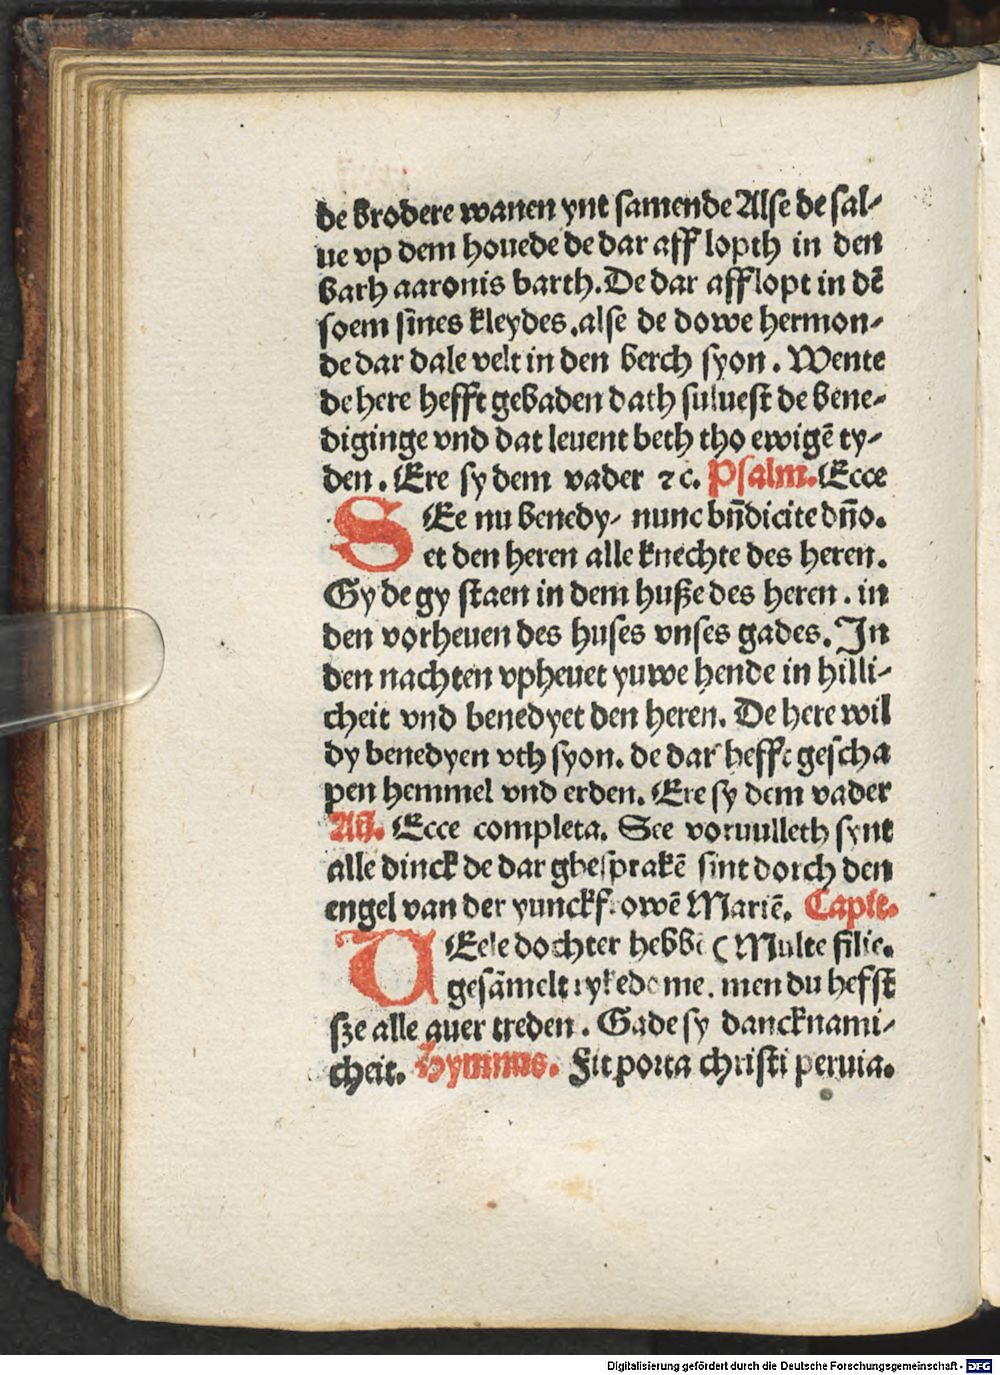 de brodere wanen ynt samende Alse de sal-
ue vp dem houede de dar aff lopth in den
barh aaronis barth. De dar afflopt in dē
soem sines kleydes, alse de dowe hermon-
de dar dale velt in den berch syon. Wente
de here hefft gebaden dath suluest de bene-
diginge vnd dat leuent beth tho ewigē ty-
den. Ere sy dem vader ⁊c. Psalm. Ecce
SEe nu benedy- nunc bn̄dicite dn̄o.
et den heren alle knechte des heren.
Gy de gy staen in dem huße des heren. in
den vorheuen des huses vnses gades. In
den nachten vpheuet yuwe hende in hilli-
cheit vnd benedyet den heren. De here wil
dy benedyen vth syon. de dar hefft gescha
pen hemmel vnd erden. Ere sy dem vader
Añ. Ecce completa. See voruulleth synt
alle dinck de dar ghesprakē sint dorch den
engel van der yunckfrowē Mariē. Caple.
UEele dochter hebbē ( Multe filie.
gesāmelt rykedome. men du hefst
sze alle auer treden. Gade sy dancknami-
cheit. Hymnus. Fit porta christi peruia.
Digitalisierung gefördert durch die Deutsche Forschungsgemeinschaft - DFG